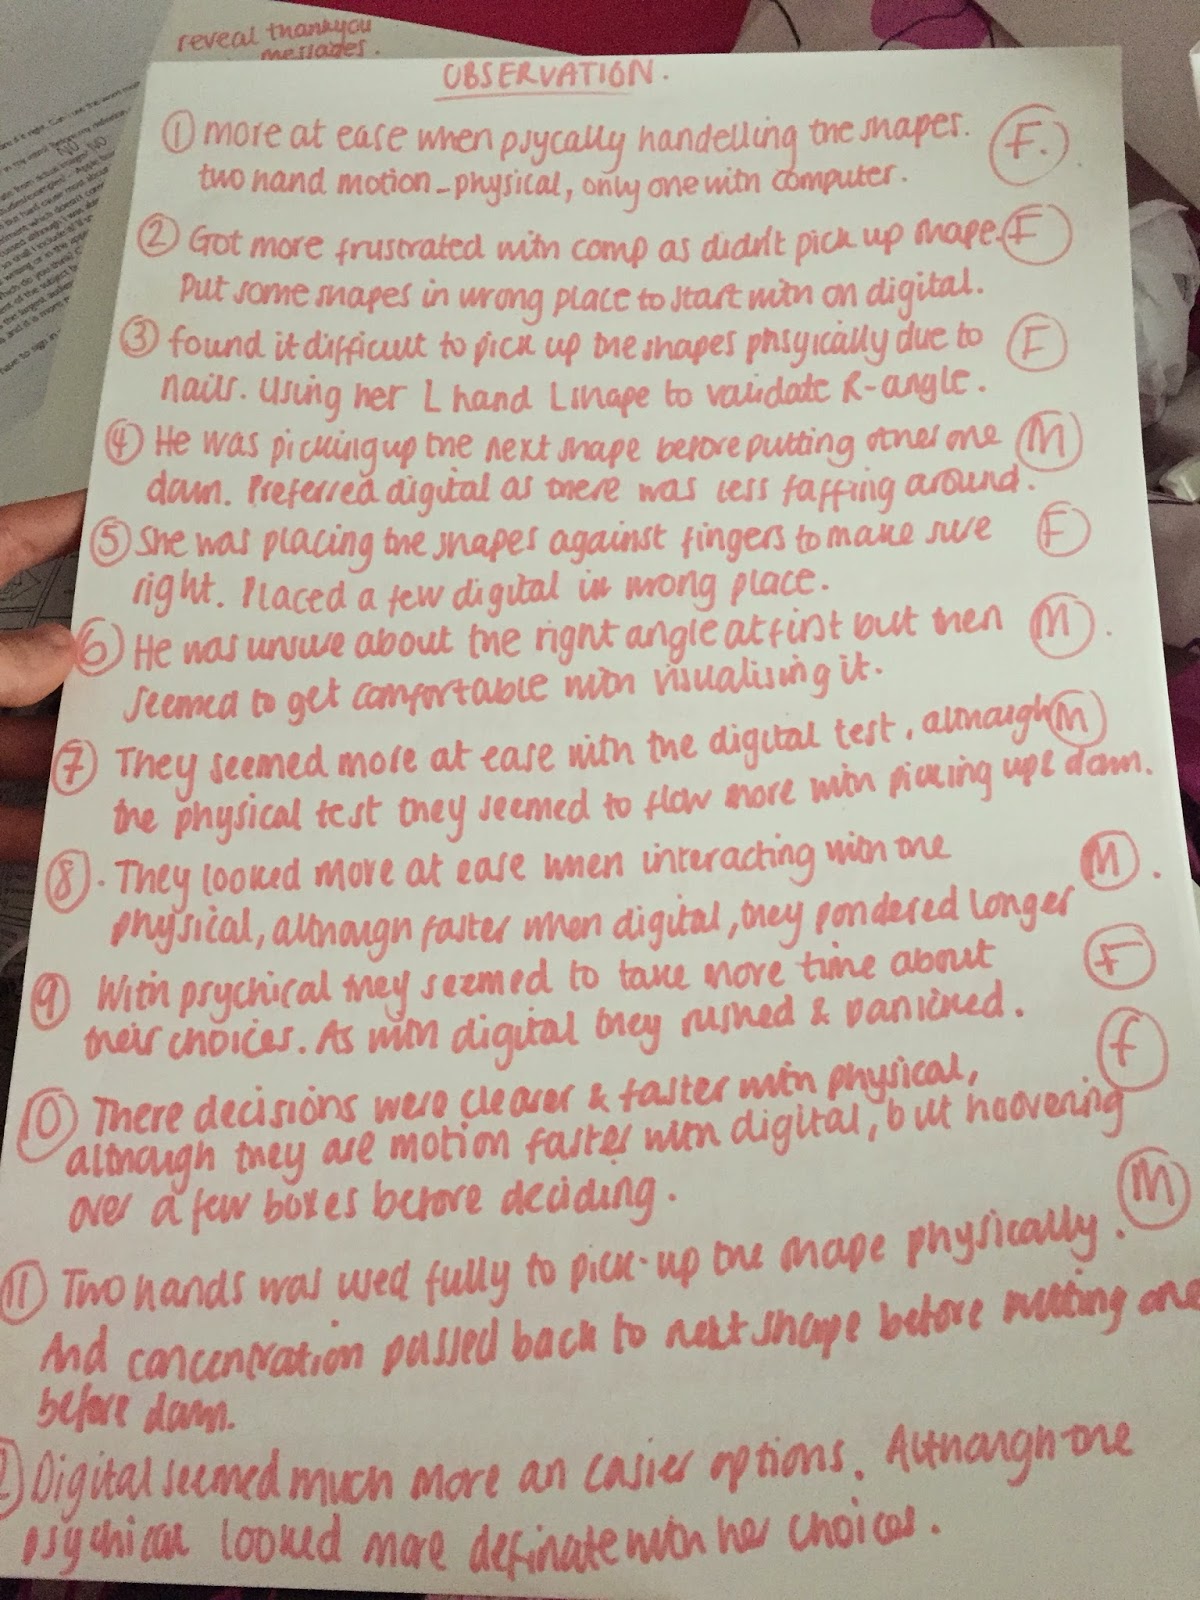 reveal thankyou
messages.
OBSERVATION.
① more at ease when psycally handelling the shapes. F.
two hand motion - physical, only one with computer.
② Got more frustrated with comp as didn't pick up shape. F
Put some shapes in wrong place to start with on digital.
③ found it difficult to pick up the shapes phsyically due to F
nails. Using her L hand L shape to validate R-angle.
④ He was picking up the next shape before putting other one M
down. Preferred digital as there was less faffing around.
⑤ She was placing the shapes against fingers to make sure F
right. Placed a few digital in wrong place.
⑥ He was unsure about the right angle at first but then M.
seemed to get comfortable with visualising it.
⑦ They seemed more at ease with the digital test, although M
the physical test they seemed to flow more with picking up & down.
⑧. They looked more at ease when interacting with the M.
physical, although faster when digital, they pondered longer
⑨ With psychical they seemed to take more time about F
their choices. As with digital they rushed & panicked.
⑩ There decisions were clearer & faster with physical, f
although they are motion faster with digital, but hoovering
over a few boxes before deciding.
⑪ Two hands was used fully to pick-up the shape physically. M
And concentration passed back to next shape before putting one
before down.
Digital seemed much more an easier options. Although the
psychical looked more definate with her choices.